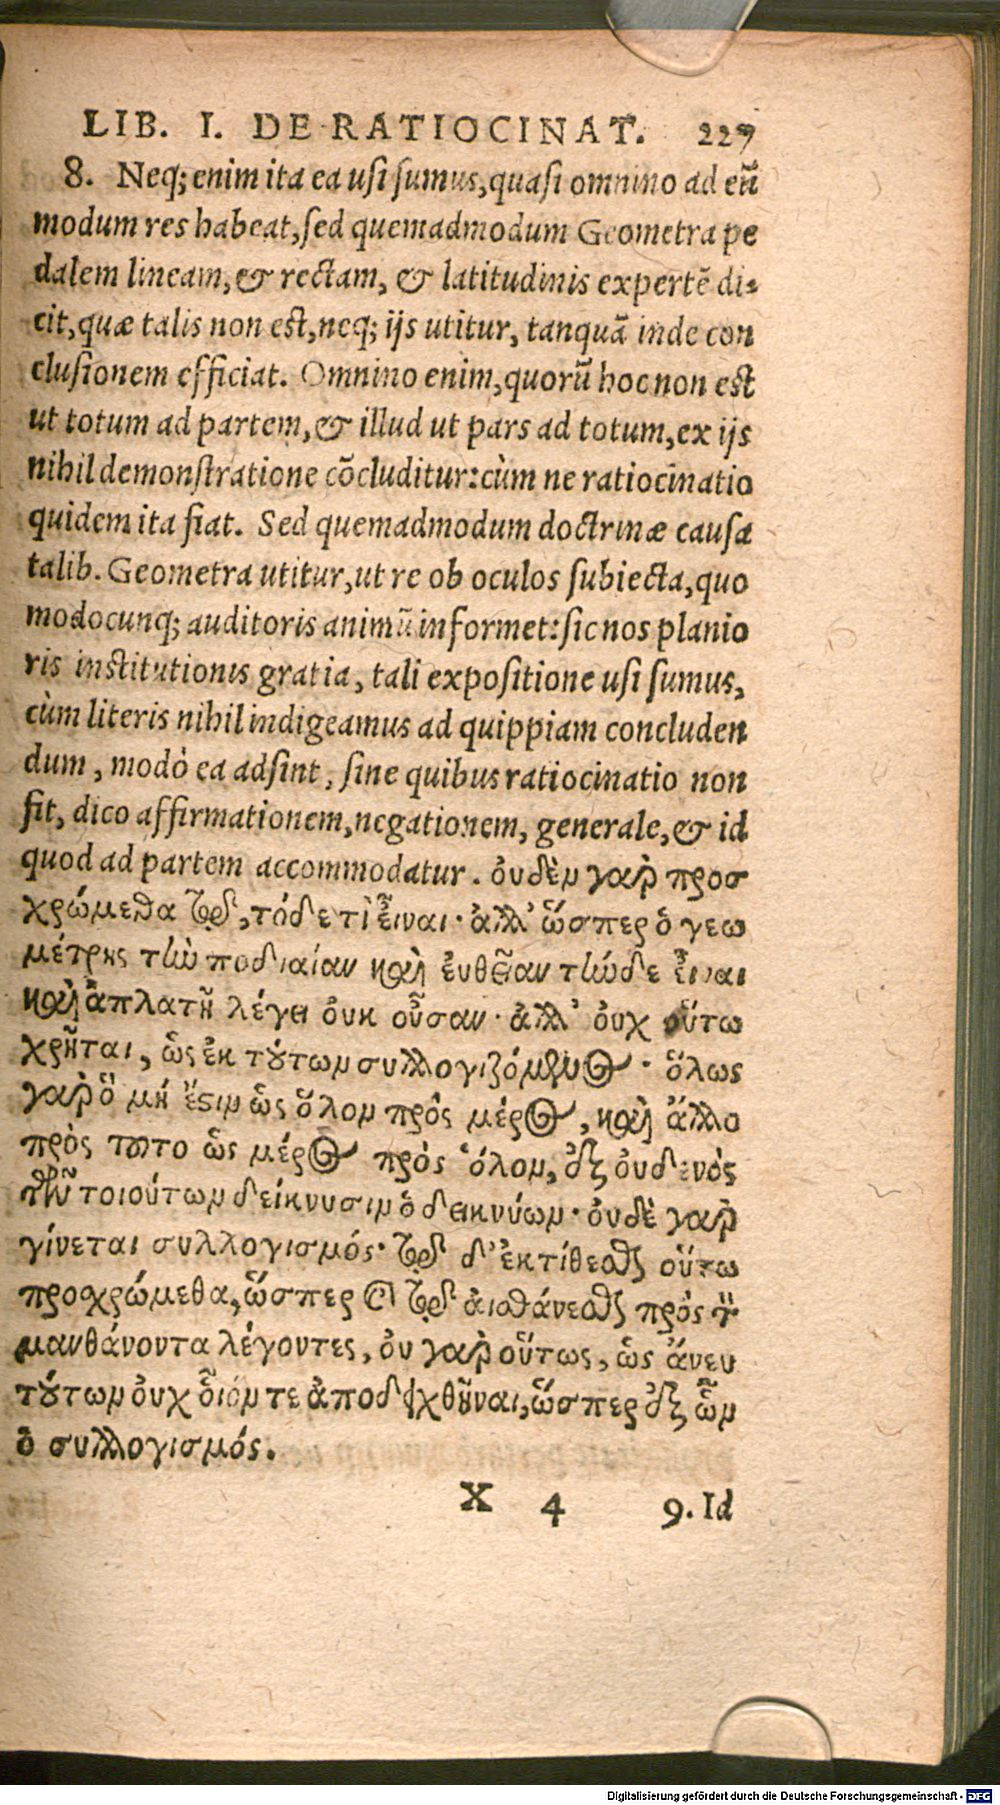 LIB. I. DE RATIOCINAT. 227
8. Neq; enim ita ea usi sumus, quasi omnino ad eũ
modum res habeat, sed quemadmodum Geometra pe
dalem lineam, & rectam, & latitudinis expertẽ di-
cit, quæ talis non est, neq; ijs utitur, tanquã inde con
clusionem efficiat. Omnino enim, quorũ hoc non est
ut totum ad partem, & illud ut pars ad totum, ex ijs
nihil demonstratione cõcluditur: cùm ne ratiocinatio
quidem ita fiat. Sed quemadmodum doctrinæ causa
talib. Geometra utitur, ut re ob oculos subiecta, quo
modocunq; auditoris animũ informet: sic nos planio
ris institutionis gratia, tali expositione usi sumus,
cùm literis nihil indigeamus ad quippiam concluden
dum, modò ea adsint, sine quibus ratiocinatio non
fit, dico affirmationem, negationem, generale, & id
quod ad partem accommodatur. οὐδὲν γαρ προσ
χρώμεθα τῷδε, τόδε τὶ εἶναι· ἀλλ’ ὥσπερ ὁ γεω
μέτρης τὴν ποδιαίαν καὶ ἐυθεῖαν τήνδε εἶναι
καὶ ἀπλατῆ λέγει ὀυκ οὖσαν· ἀλλ’ ὀυχ οὕτω
χρῆται, ὡς ἐκ τούτων συλλογιζόμενος· ὅλως
γαρ ὃ μή ἐστιν ὡς ὅλον πρὸς μέρος, καὶ ἄλλο
πρὸς τοῦτο ὡς μέρος πρὸς ὅλον, ἐξ ὀυδενὸς
τῶν τοιούτων δείκνυσιν ὁ δεικνύων· ὀυδὲ γαρ
γίνεται συλλογισμός· τῷ δ’ ἐκτίθεσθαι οὕτω
προσχρώμεθα, ὥσπερ καὶ τῷ αἰσθάνεσθαι πρὸς τὸν
μανθάνοντα λέγοντες, ὀυ γαρ οὕτως, ὡς ἄνευ
τούτων ὀυχ οἷόν τε ἀποδειχθῆναι, ὥσπερ ἐξ ὧν
ὁ συλλογισμός.
X 4 9. Id
Digitalisierung gefördert durch die Deutsche Forschungsgemeinschaft - DFG